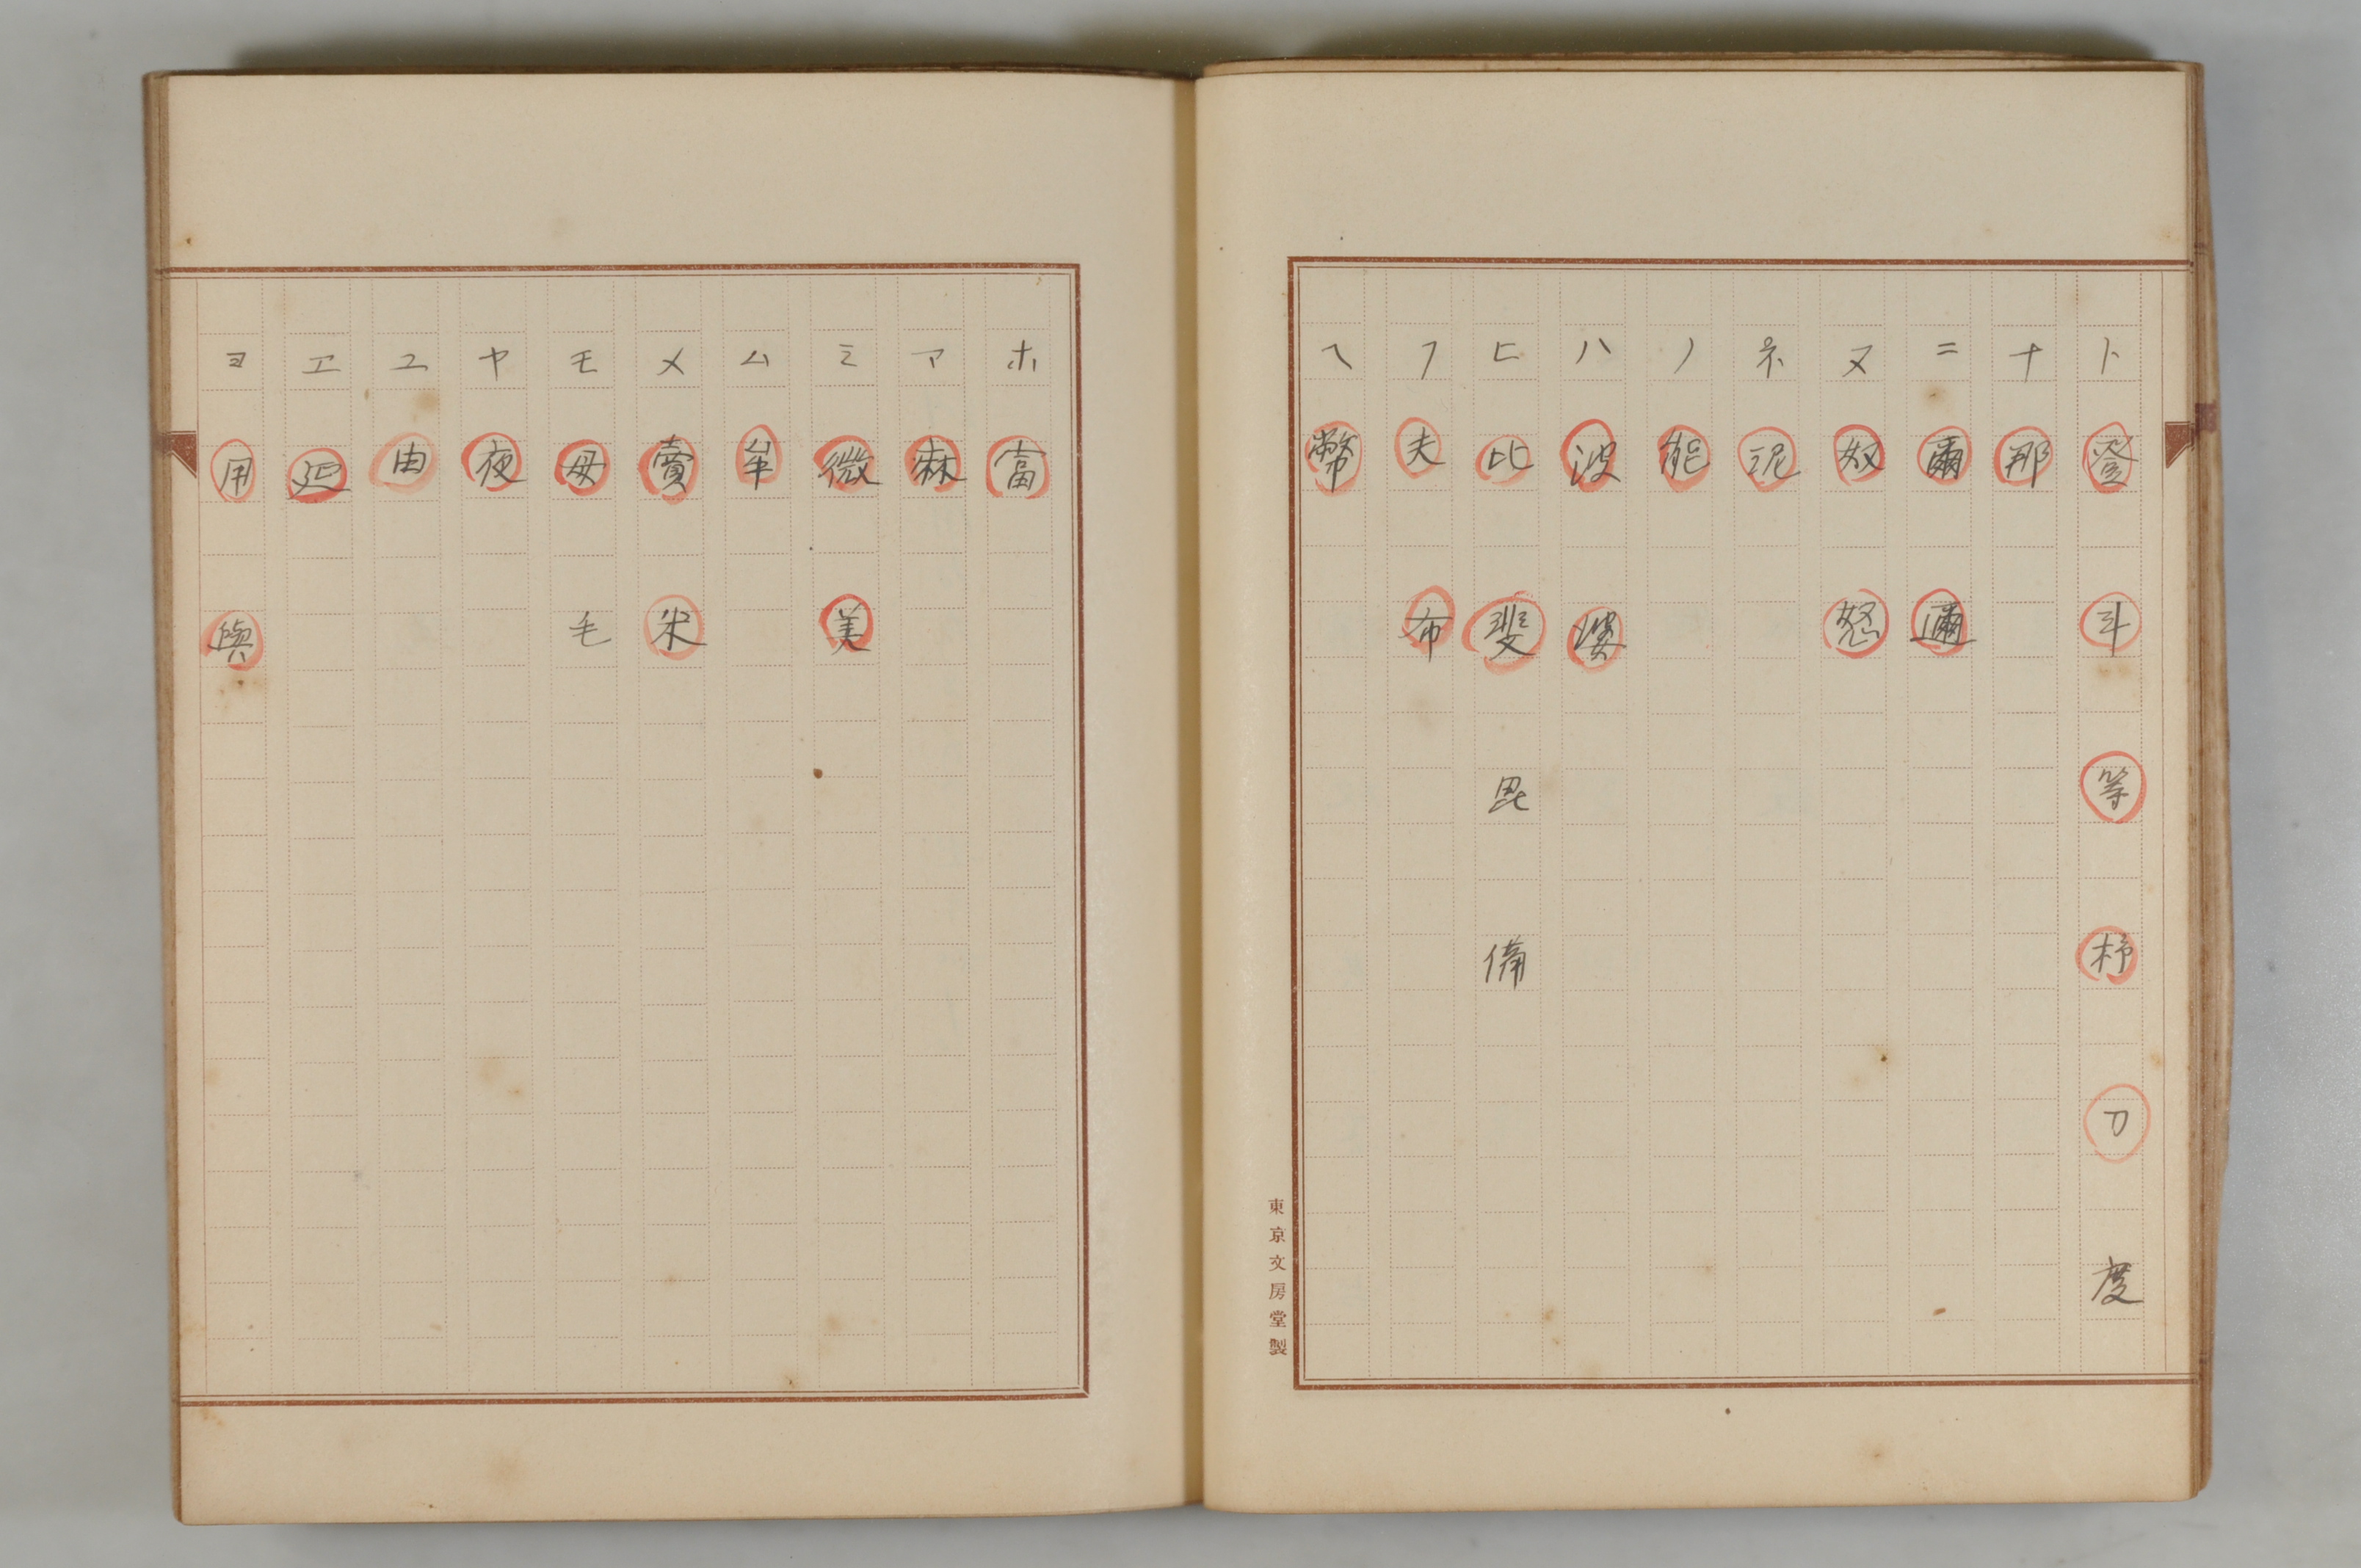 ト 登 斗 等 杼 刀 度
ナ 那
ニ 爾 邇
ヌ 奴 怒
ネ 泥
ノ 能
ハ 波 婆
ヒ 比 斐 毘 備
フ 夫 布
ヘ 幣
東京文房堂製
ホ 富
マ 麻
ミ 微 美
ム 牟
メ 賣 米
モ 母 毛
ヤ 夜
ユ 由
エ 延
ヨ 用 與